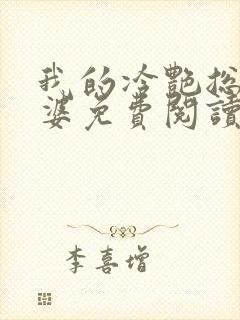 我的冷艷总
婆免費閱讀
李喜增